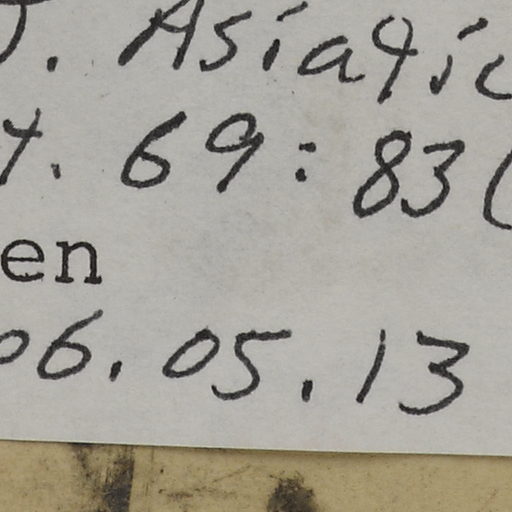 J. Asiatic
t. 69: 83 (
en
06.05.13